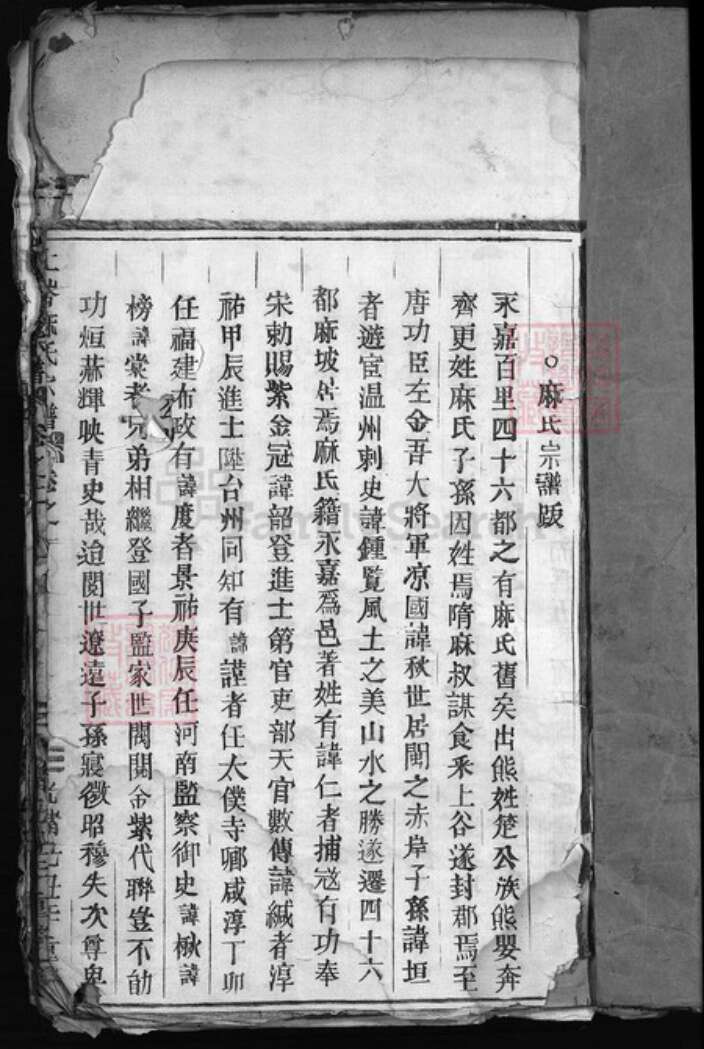 ○麻氏宗譜䟦
永嘉百里四十六都之有麻氏舊矣出熊姓楚公族熊嬰奔
齊更姓麻氏子孫因姓焉隋麻叔謀食釆上谷遂封郡焉至
唐功臣左金吾大將軍凉國諱秋世居閩之赤岸子孫諱垣
者遊宦温州刺史諱鍾覽風土之美山水之勝遂遷四十六
都麻坡居焉麻氏籍永嘉為邑著姓有諱仁者捕寇有功奉
宋勅賜紫金冠諱韶登進士第官吏部天官數傳諱緘者淳
祐甲辰進士陞台州同知有諱謹者任太僕寺卿咸淳丁卯
任福建布政有諱度者景祐庚辰任河南監察御史諱楸諱
榜諱棠者兄弟相繼登國子監家世閥閱金紫代聯豈不勛
功烜赫輝映青史哉迨閱世遼遠子孫寢微昭穆失次尊卑
麻氏宗譜
FamilySearch